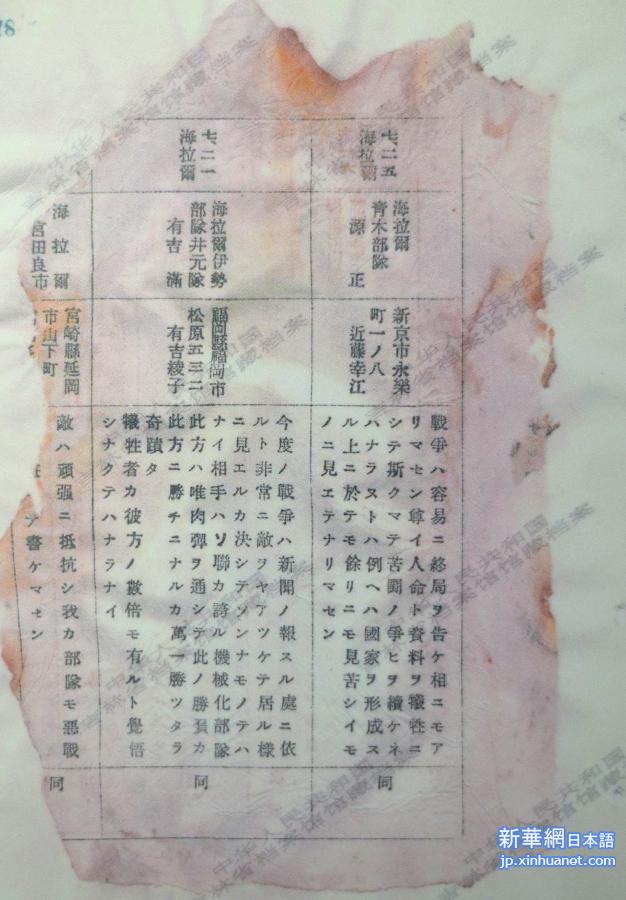 七、二五
海拉爾
海拉爾
青木部隊
源 正
新京市永樂
町一ノ八
近藤幸江
戰爭ハ容易ニ終局ヲ告ケ相ニモア
リマセン尊イ人命ト資料ヲ犧牲ニ
シテ斯クマテ苦鬪ノ爭ヒヲ續ケネ
ハナラヌトハ例ヘハ國家ヲ形成ス
ル上ニ於テモ餘リニモ見苦シイモ
ノニ見ヱテナリマセン
同
七、二一
海拉爾
海拉爾伊勢
部隊井元隊
有吉 滿
福岡縣福岡市
松原五三二
有吉綾子
今度ノ戰爭ハ新聞ノ報スル處ニ依
ルト非常ニ敵ヲヤアツケテ居ル樣
ニ見エルカ決シテソンナモノテハ
ナイ相手ハソ聯カ誇ル機械化部隊
此方ハ唯肉彈ヲ通シテ此ノ勝負カ
此方ニ勝チニナルカ萬一勝ツタラ
奇蹟タ
犧牲者カ彼方ノ數倍モ有ルト覺悟
シナクテハナラナイ
同
海拉爾
宮田良市
宮崎縣延岡
市山下町
敵ハ頑强ニ抵抗シ我カ部隊モ惡戰
テ書ケマセン
同
78
中华人民共和国
吉林省档案馆馆藏档案
新華網日本語
jp.xinhuanet.com